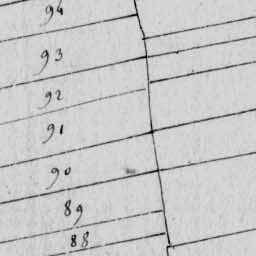 94
93
92
91
90
89
88